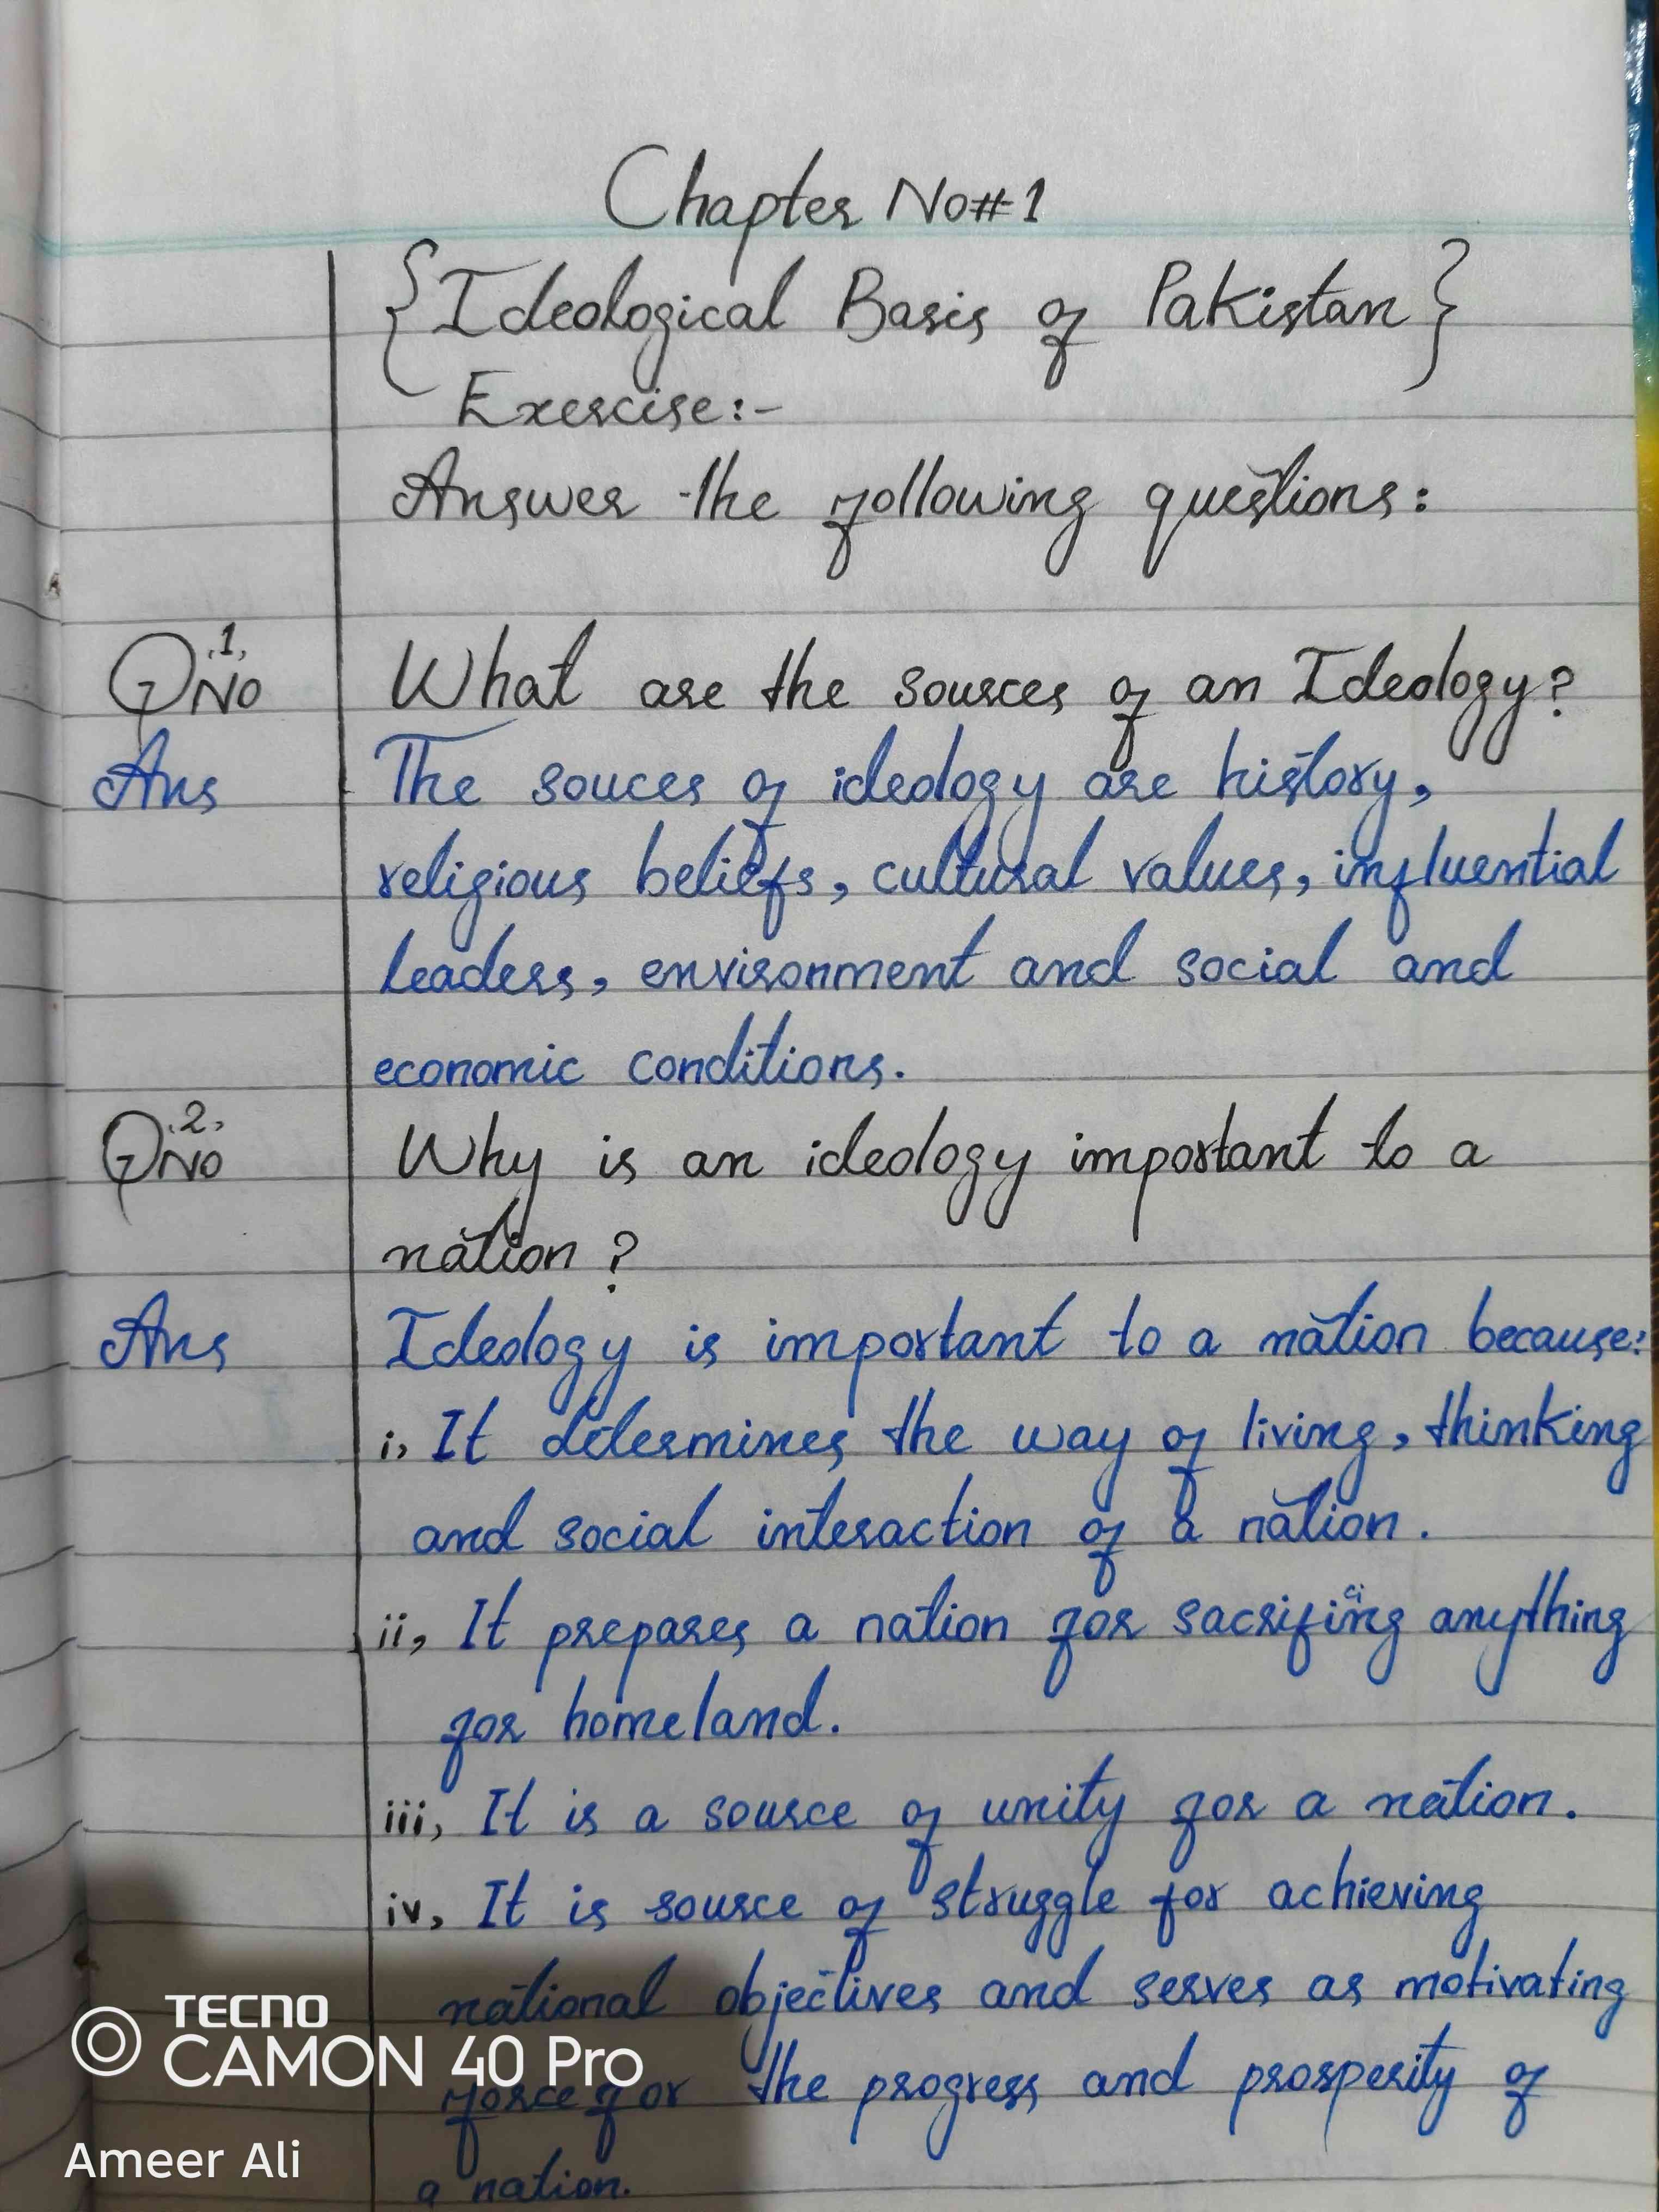 Chapter No#1
{Ideological Basis of Pakistan}
Exercise:-
Answer the following questions:
Q No .1, What are the sources of an Ideology?
Ans The souces of ideology are history,
religious beliefs, cultural values, influential
leaders, environment and social and
economic conditions.
Q No .2, Why is an ideology important to a
nation?
Ans Ideology is important to a nation because:
i, It determines the way of living, thinking
and social interaction of a nation.
ii, It prepares a nation for sacrificing anything
for homeland.
iii, It is a source of unity for a nation.
iv, It is source of struggle for achieving
national objectives and serves as motivating
force for the progress and prosperity of
a nation.
TECNO
CAMON 40 Pro
Ameer Ali